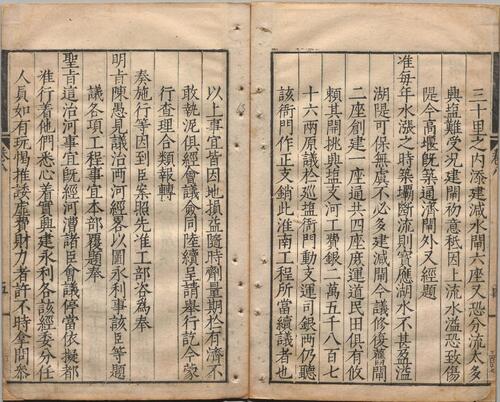 三十里之内添建減水閘六座又恐分流太多
興塩難受况建閘初意秪因上流水溢恐致傷
隄今高堰旣築通濟閘外又經題
准每年水漲之時築壩斷流則寳應湖水不甚盈溢
湖隄可保無虞不必多建減閘今議修復舊閘
二座創建一座通共四座庶運道民田俱有攸
頼其開挑興塩支河工費銀二萬五千八百七
十六兩原議於廵塩衙門動支運司銀兩仍聽
該衙門作正支銷此淮南工程所當續議者也
以上事宜皆因地損益隨時劑量期於有濟不
敢執泥俱經會議僉同陸續呈請舉行訖今蒙
行查理合類報轉
奏施行等因到臣案照先准工部咨為奉
明旨陳愚見議治兩河經畧以圖永利事該臣等題
議各項工程事宜本部覆題奉
聖旨這治河事宜旣經河漕諸臣會議停當依擬都
准行着他們悉心着實興建永利各該經委分任
人員如有玩愒推諉虛費財力者許不時拿問叅
卷八
五